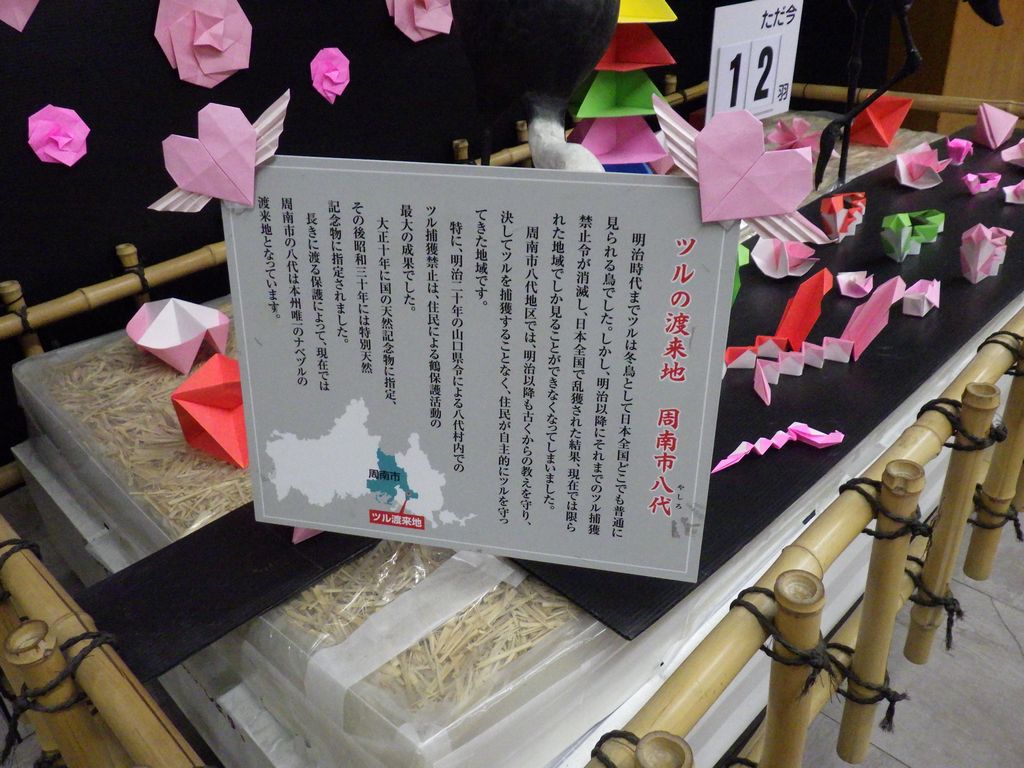 ただ今
12
羽
ツルの渡来地　周南市八代
やしろ
明治時代までツルは冬鳥として日本全国どこでも普通に
見られる鳥でした。しかし、明治以降にそれまでのツル捕獲
禁止令が消滅し、日本全国で乱獲された結果、現在では限ら
れた地域でしか見ることができなくなってしまいました。
周南市八代地区では、明治以降も古くからの教えを守り、
決してツルを捕獲することなく、住民が自主的にツルを守っ
てきた地域です。
特に、明治二十年の山口県令による八代村内での
ツル捕獲禁止は、住民による鶴保護活動の
最大の成果でした。
大正十年に国の天然記念物に指定、
その後昭和三十年には特別天然
記念物に指定されました。
長きに渡る保護によって、現在では
周南市の八代は本州唯一のナベヅルの
渡来地となっています。
周南市
ツル渡来地